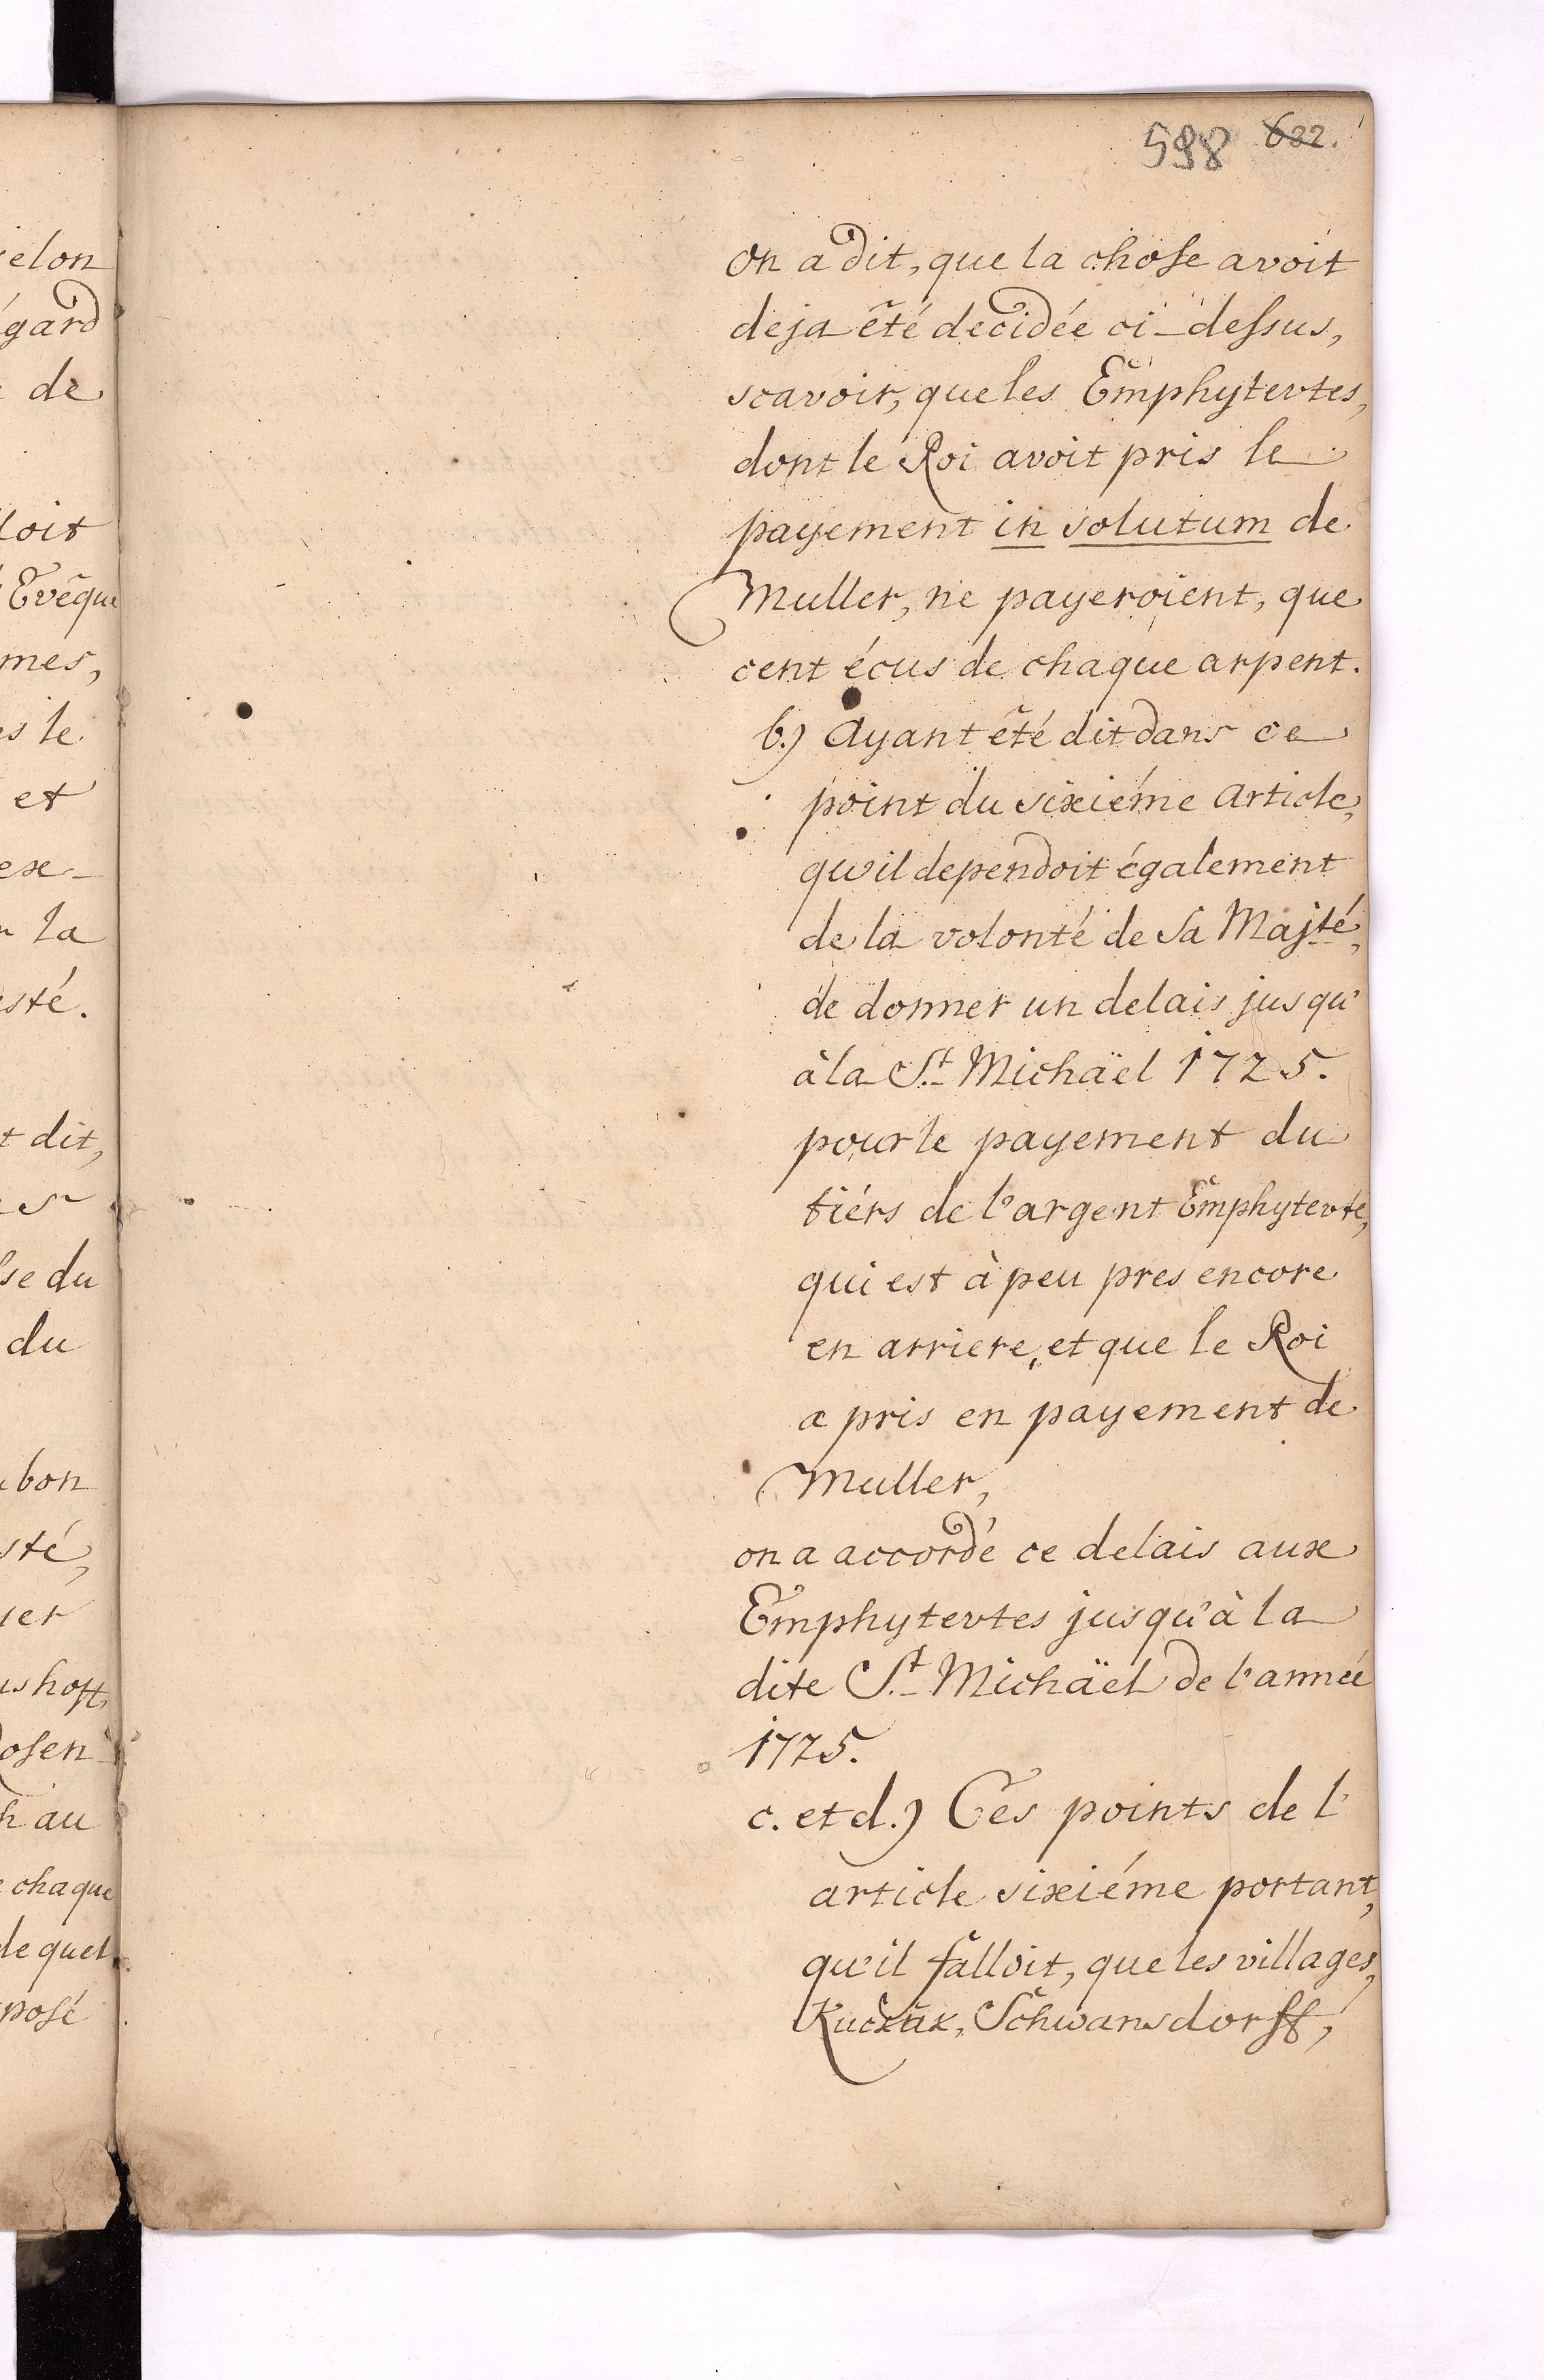 elon
égard
de
loit
Evêque
mes,
es le
et
ex-
la
esté.
t dit,
se du
du
bon
sté,
ier
hoff,
osen
h au
chaque
de quel
posé
598 622.
on a dit, que la chose avoit
deja êté decidée ci-dessus,
scavoir, que les Emphytevtes,
dont le Roi avoit pris le
payement in solutum de
Muller, ne payeroient, que
cent écus de chaque arpent.
b.) Ayant êté dit dans ce
point du sixiéme article,
qu'il dependoit également
de la volonté de Sa Majté,
de donner un delais jusqu'
à la St. Michaël 1725.
pour le payement du
tiérs de l'argent Emphytevte,
qui est à peu pres encore
en arriere, et que le Roi
a pris en payement de
Muller,
on a accordé ce delais aux
Emphytevtes jusqu'à la
dite St. Michaël de l'année
1725.
c. et d.) Ces points de l'
article sixiéme portant,
qu'il falloit, que les villages,
Kuckuk, Schwansdorff,